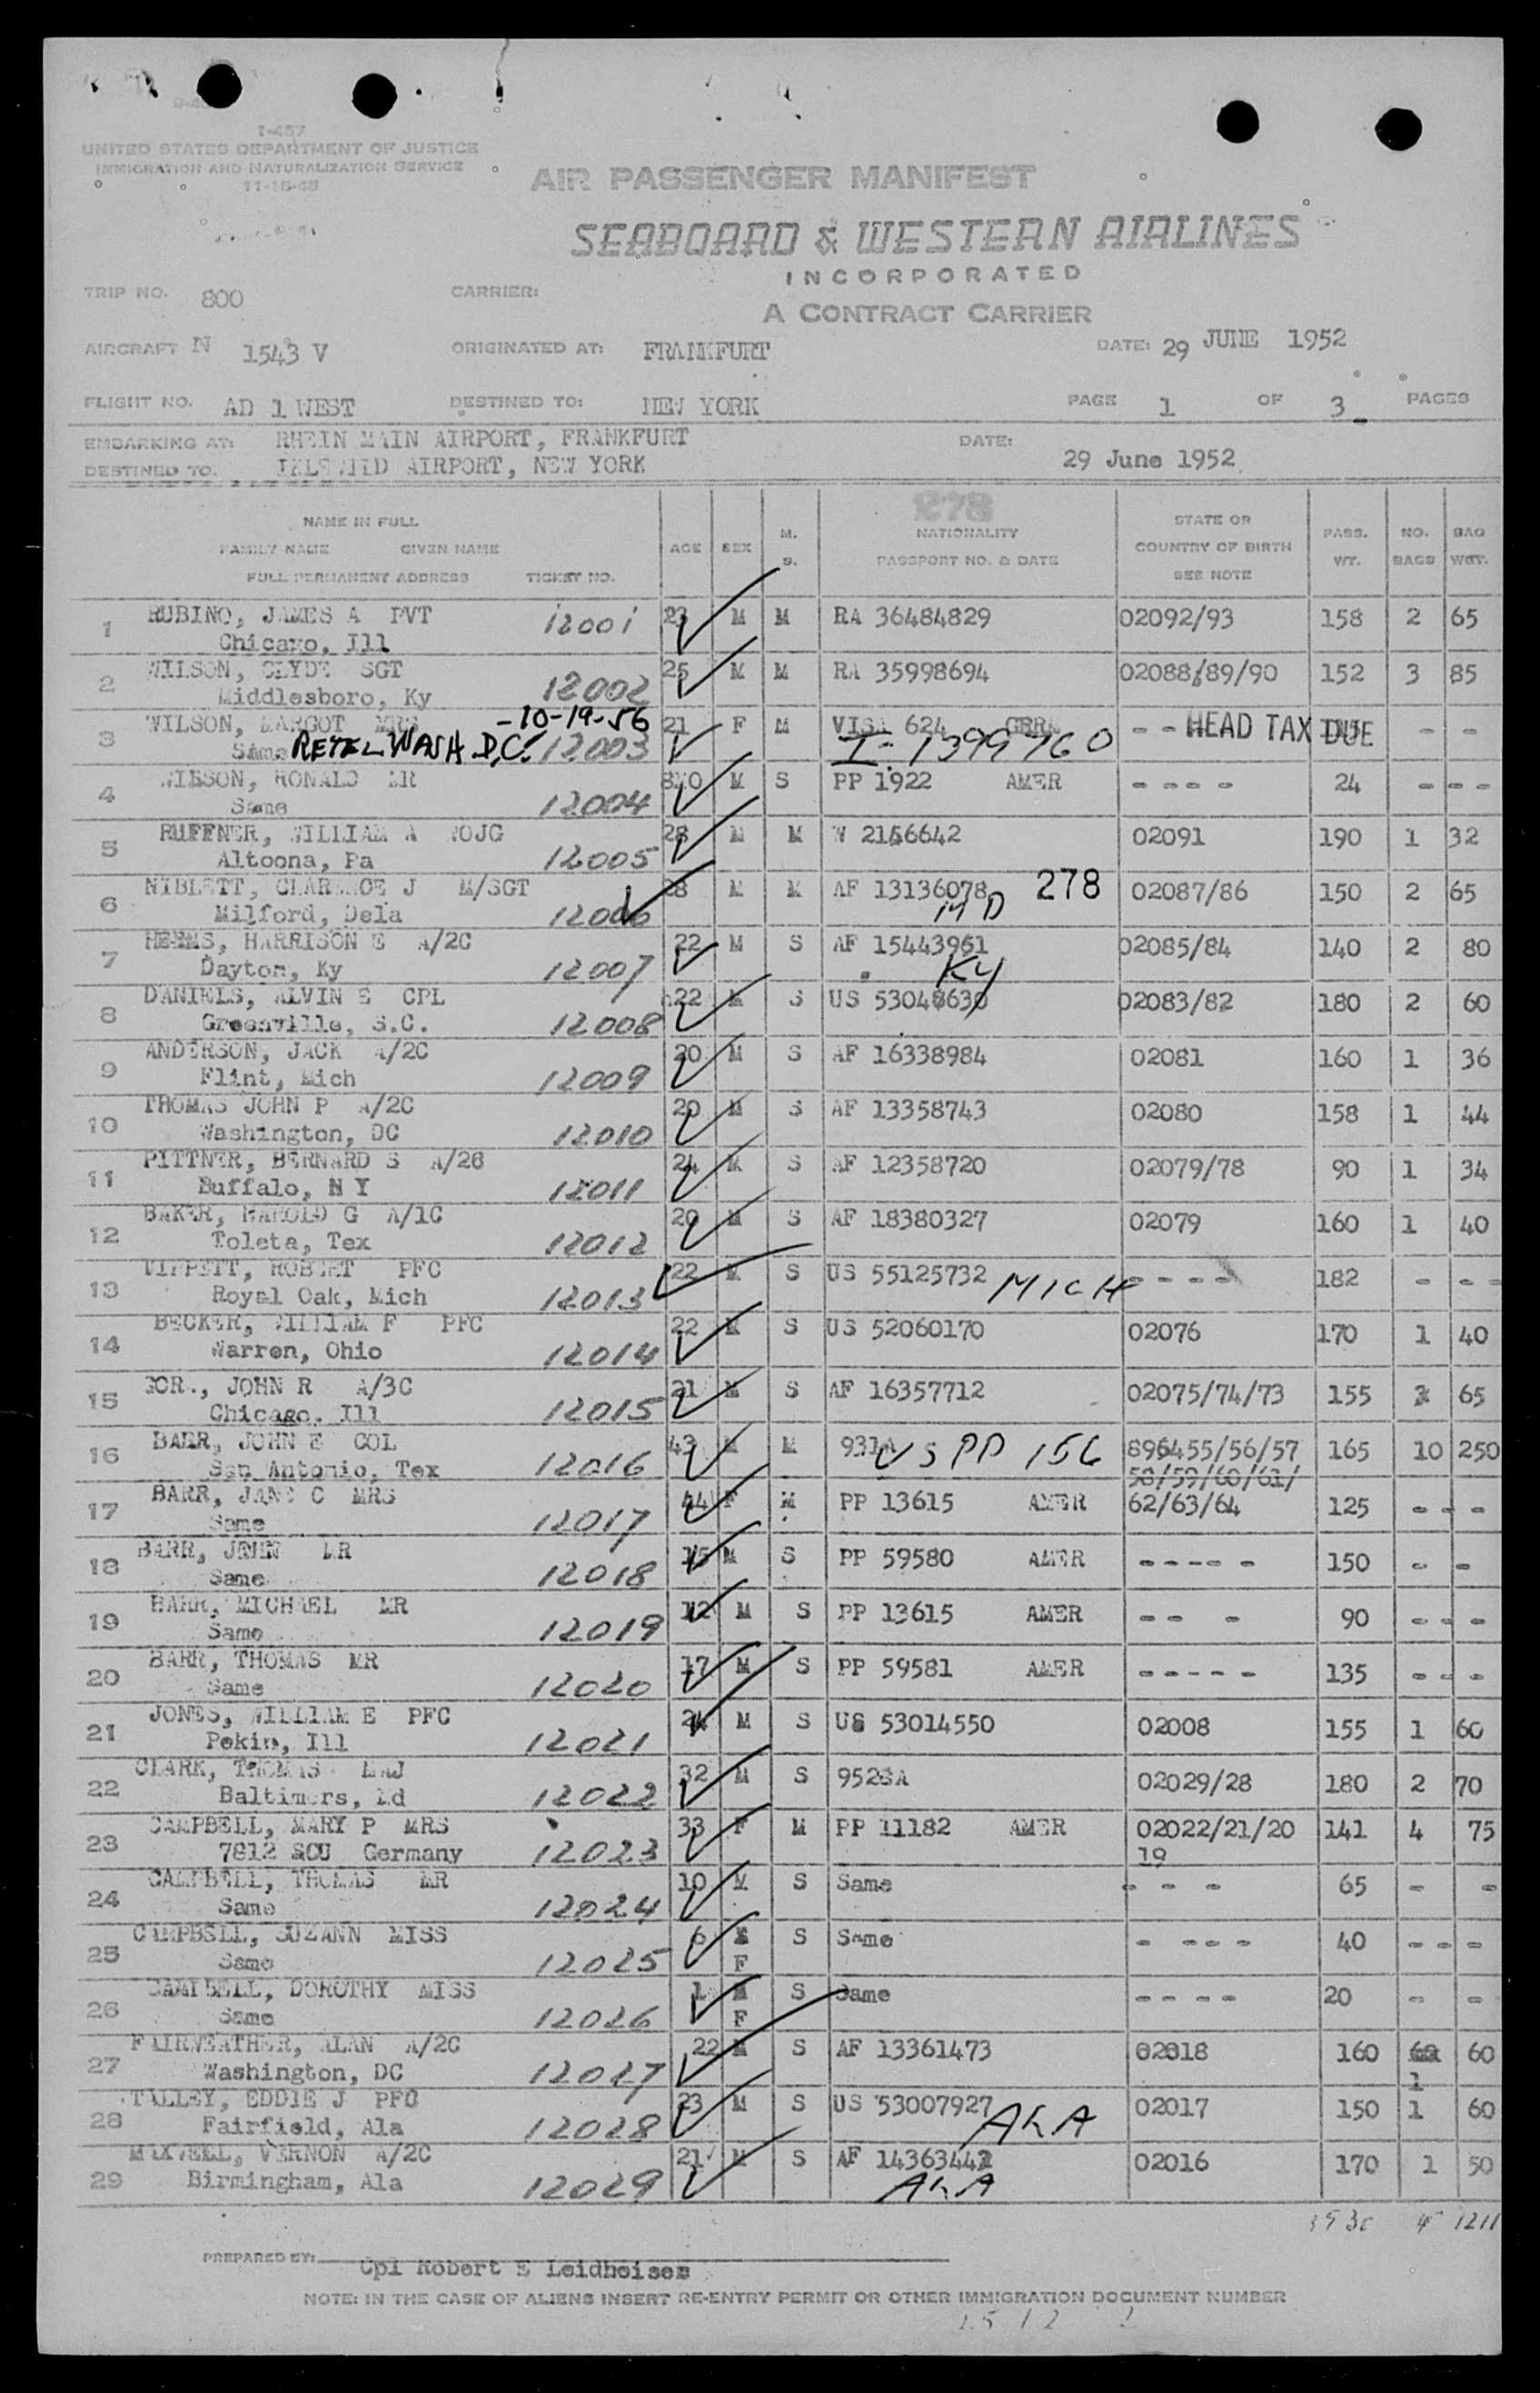 I-457
UNITED STATES DEPARTMENT OF JUSTICE
IMMIGRATION AND NATURALIZATION SERVICE
11-15-48
AIR PASSENGER MANIFEST
SEABOARD & WESTERN AIRLINES
INCORPORATED
A CONTRACT CARRIER
TRIP NO. 800 CARRIER:
AIRCRAFT N 1543 V ORIGINATED AT: FRANKFURT DATE: 29 JUNE 1952
FLIGHT NO. AD 1 WEST DESTINED TO: NEW YORK PAGE 1 OF 3 PAGES
EMBARKING AT: RHEIN MAIN AIRPORT, FRANKFURT DATE:
DESTINED TO. IDLEWILD AIRPORT, NEW YORK 29 June 1952
278
NAME IN FULL
FAMILY NAME GIVEN NAME
FULL PERMANENT ADDRESS TICKET NO.
AGE SEX M. S. NATIONALITY PASSPORT NO. & DATE STATE OR COUNTRY OF BIRTH SEE NOTE PASS. WT. NO. BAGS BAG WGT.
1 RUBINO, JAMES A PVT 12001 23 M M RA 36484829 02092/93 158 2 65
Chicago, Ill
2 WILSON, CLYDE SGT 25 M M RA 35998694 02088/89/90 152 3 85
Middlesboro, Ky 12002
3 WILSON, MARGOT MRS -10-19-56 21 F M VISA 624 GERM - - HEAD TAX DUE - -
Same RETEL WASH D.C. 12003 I-1399760
4 WILSON, RONALD MR M S PP 1922 AMER - - - - 24 - - -
Same 12004
5 RUFFNER, WILLIAM A WOJG 28 M M W 2146642 02091 190 1 32
Altoona, Pa 12005
6 NIBLETT, CLARENCE J M/SGT 28 M M AF 13136078 278 02087/86 150 2 65
Milford, Dela 12006 MD
7 HEEMS, HARRISON E A/2C 22 M S AF 15443961 02085/84 140 2 80
Dayton, Ky 12007 KY
8 DANIELS, ALVIN E CPL 22 M S US 53048630 02083/82 180 2 60
Greenville, S.C. 12008
9 ANDERSON, JACK A/2C 20 M S AF 16338984 02081 160 1 36
Flint, Mich 12009
10 THOMAS JOHN P A/2C 20 M S AF 13358743 02080 158 1 44
Washington, DC 12010
11 PITTNER, BERNARD S A/26 24 M S AF 12358720 02079/78 90 1 34
Buffalo, N Y 12011
12 BAKER, HAROLD G A/1C 20 M S AF 18380327 02079 160 1 40
Toleta, Tex 12012
13 ROBERT PFC 22 M S US 55125732 MICH - - - - 182 - - -
Royal Oak, Mich 12013
14 BECKER, WILLIAM F PFC 22 M S US 52060170 02076 170 1 40
Warren, Ohio 12014
15 JOHN R A/3C 21 M S AF 16357712 02075/74/73 155 3 65
Chicago, Ill 12015
16 BARR, JOHN E COL 43 M M 931A US PP 156 896455/56/57 165 10 250
San Antonio, Tex 12016 58/59/60/61/
17 BARR, JANE C MRS 44 F M PP 13615 AMER 62/63/64 125 - - -
Same 12017
18 BARR, JOHN MR 15 M S PP 59580 AMER - - - - - 150 - -
Same 12018
19 BARR, MICHAEL MR 12 M S PP 13615 AMER - - - 90 - - -
Same 12019
20 BARR, THOMAS MR 17 M S PP 59581 AMER - - - - - 135 - - -
Same 12020
21 JONES, WILLIAM E PFC 24 M S US 53014550 02008 155 1 60
Pekin, Ill 12021
22 CLARK, THOMAS MAJ 32 M S 9528A 02029/28 180 2 70
Baltimors, Md 12022
23 CAMPBELL, MARY P MRS 33 F M PP 11182 AMER 02022/21/20 141 4 75
7812 SCU Germany 12023 19
24 CAMPBELL, THOMAS MR 10 M S Same - - - 65 - -
Same 12024
25 CAMPBELL, SUZANN MISS 6 M S Same - - - - 40 - - -
Same 12025 F
26 CAMPBELL, DOROTHY MISS 1 M S Same - - - - 20 - -
Same 12026 F
27 FAIRWEATHER, ALAN A/2C 22 M S AF 13361473 02018 160 60 60
Washington, DC 12027 1
28 TALLEY, EDDIE J PFC 23 M S US 53007927 02017 150 1 60
Fairfield, Ala 12028 AKA
29 MAXWELL, VERNON A/2C 21 M S AF 14363442 02016 170 1 50
Birmingham, Ala 12029 AKA
1211
PREPARED BY: Cpl Robert E Leidheiser
NOTE: IN THE CASE OF ALIENS INSERT RE-ENTRY PERMIT OR OTHER IMMIGRATION DOCUMENT NUMBER